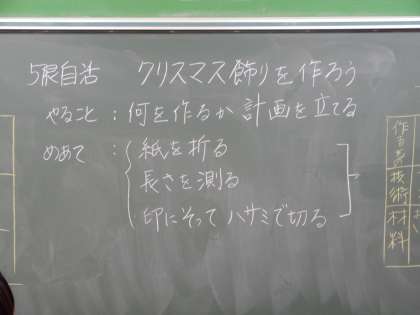 5限自活 クリスマス飾りを作ろう
やること：何を作るか 計画を立てる
めあて：紙を折る
長さを測る
印にそって ハサミで切る
技術
材料